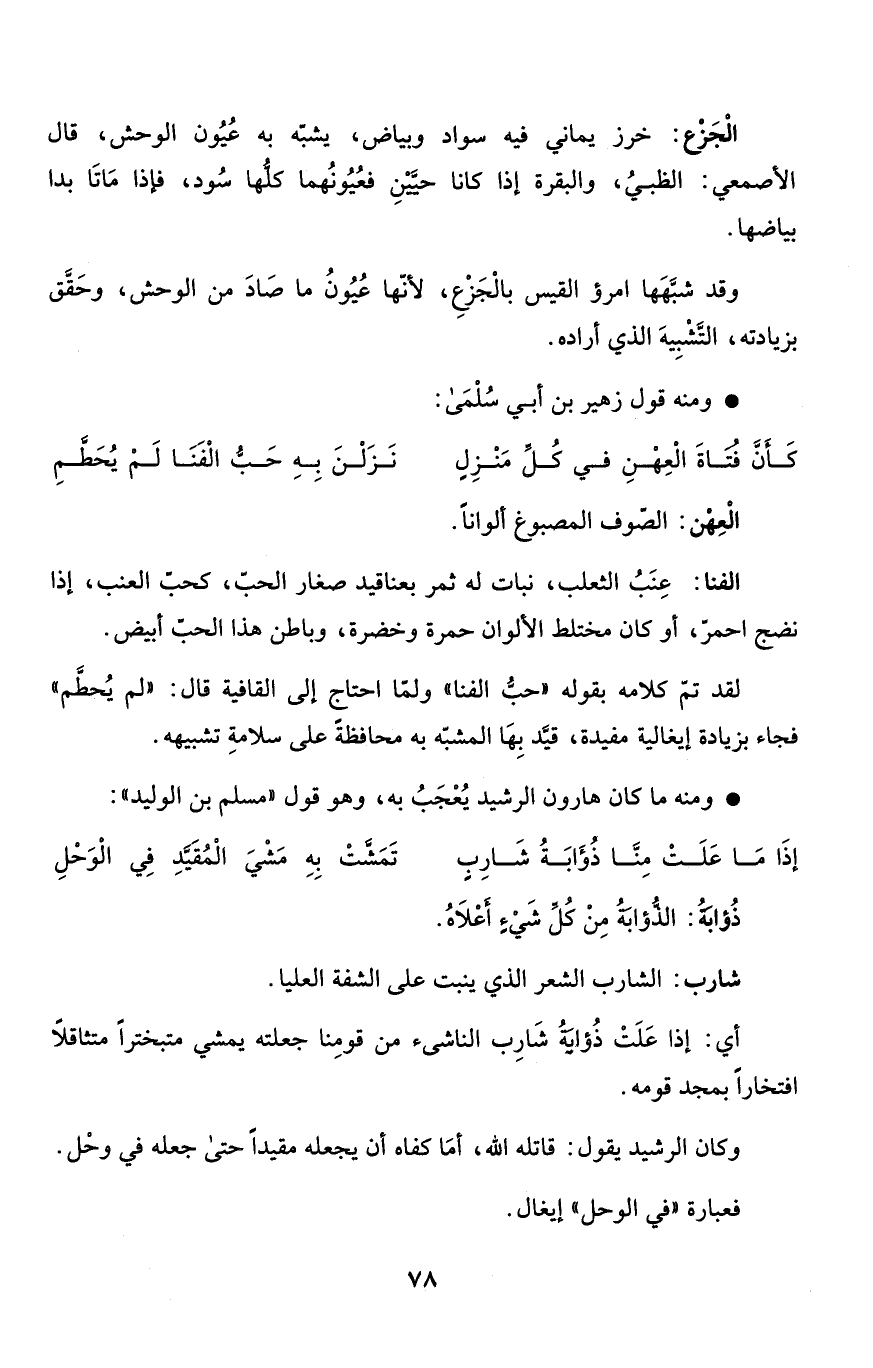 الْجَزْع: خرز يماني فيه سواد وبياض، يشبّه به عُيُون الوحش، قال
الأصمعي: الظبيُ، والبقرة إذا كانا حيَّيْنِ فعُيُونُهما كلُّها سُود، فإذا مَاتَا بدا
بياضها.
وقد شبَّهَها امرؤ القيس بالْجَزْعِ، لأنّها عُيُونُ ما صَادَ من الوحش، وحَقَّق
بزيادته، التَّشْبِيهَ الذي أراده.
● ومنه قول زهير بن أبي سُلْمَىٰ:
كَـأَنَّ فُتَـاةَ الْعِهْـنِ فـي كُـلِّ مَنْـزِلٍ نَـزَلْـنَ بِـهِ حَـبُّ الْفَنَـا لَـمْ يُحَطَّـمِ
الْعِهْن: الصّوف المصبوغ ألواناً.
الفنا: عِنَبُ الثعلب، نبات له ثمر بعناقيد صغار الحبّ، كحبّ العنب، إذا
نضج احمرّ، أو كان مختلط الألوان حمرة وخضرة، وباطن هذا الحبّ أبيض.
لقد تمّ كلامه بقوله «حبُّ الفنا» ولمّا احتاج إلى القافية قال: «لم يُحطَّم»
فجاء بزيادة إيغالية مفيدة، قيَّد بِهَا المشبّه به محافظةً على سلامةِ تشبيهه.
● ومنه ما كان هارون الرشيد يُعْجَبُ به، وهو قول «مسلم بن الوليد»:
إذَا مَـا عَلَـتْ مِنَّـا ذُؤَابَـةُ شَـارِبٍ تَمَشَّتْ بِهِ مَشْيَ الْمُقَيَّدِ فِي الْوَحْلِ
ذُؤابَةُ: الذُّؤابَةُ مِنْ كُلِّ شَيْءٍ أَعْلَاهُ.
شارب: الشارب الشعر الذي ينبت على الشفة العليا.
أي: إذا عَلَتْ ذُؤابَةُ شَارِب الناشىء من قومِنا جعلته يمشي متبختراً متثاقلاً
افتخاراً بمجد قومه.
وكان الرشيد يقول: قاتله الله، أمَا كفاه أن يجعله مقيداً حتىٰ جعله في وحْل.
فعبارة «في الوحل» إيغال.
٧٨